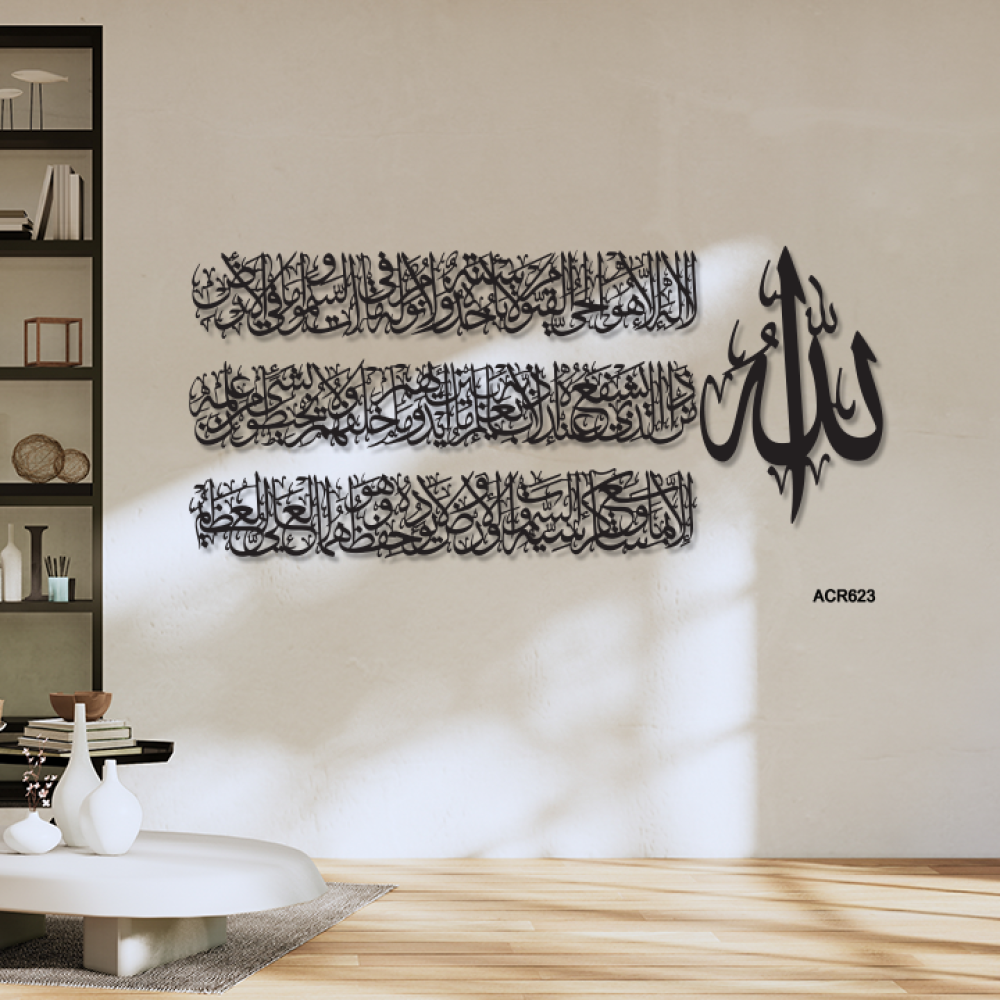 الله
لا إله إلا هو الحي القيوم لا تأخذه سنة ولا نوم له ما في السموات وما في الأرض
من ذا الذي يشفع عنده إلا بإذنه يعلم ما بين أيديهم وما خلفهم ولا يحيطون بشيء من علمه
إلا بما شاء وسع كرسيه السموات والأرض ولا يؤده حفظهما وهو العلي العظيم
ACR623